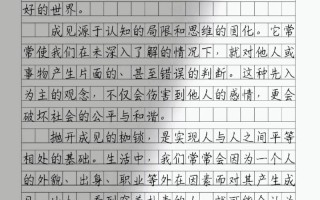 好的世界。
成见源于认知的局限和思维的固化。它常
常使我们在未深入了解的情况下，就对他人或
事物产生片面的、甚至错误的判断。这种先入
为主的观念，不仅会伤害到他人的感情，更会
破坏社会的公平与和谐。
抛开成见的枷锁，是实现人与人之间平等
相处的基础。生活中，我们常常会因为一个人
的外貌、出身、职业等外在因素而对其产生成